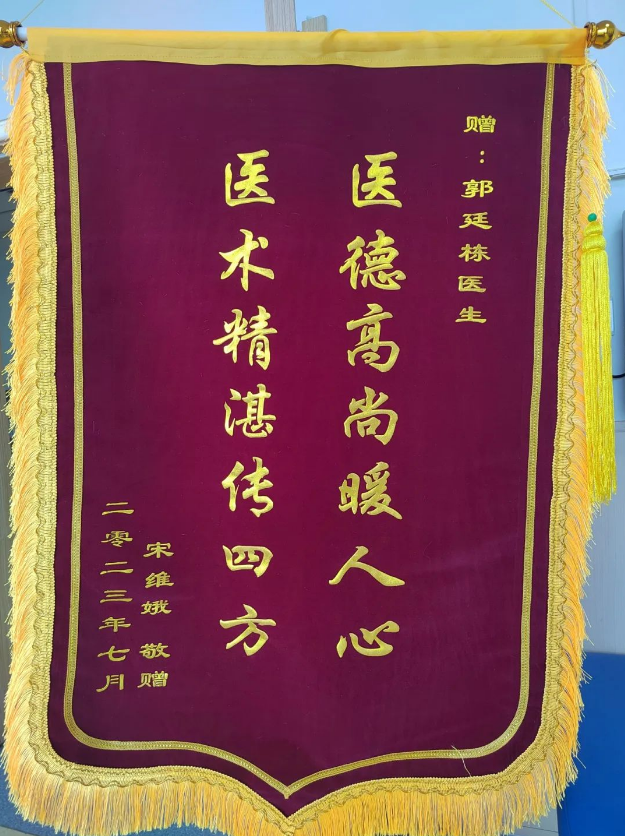 赠：郭廷栋医生
医德高尚暖人心
医术精湛传四方
宋维娥 敬赠
二零二三年七月